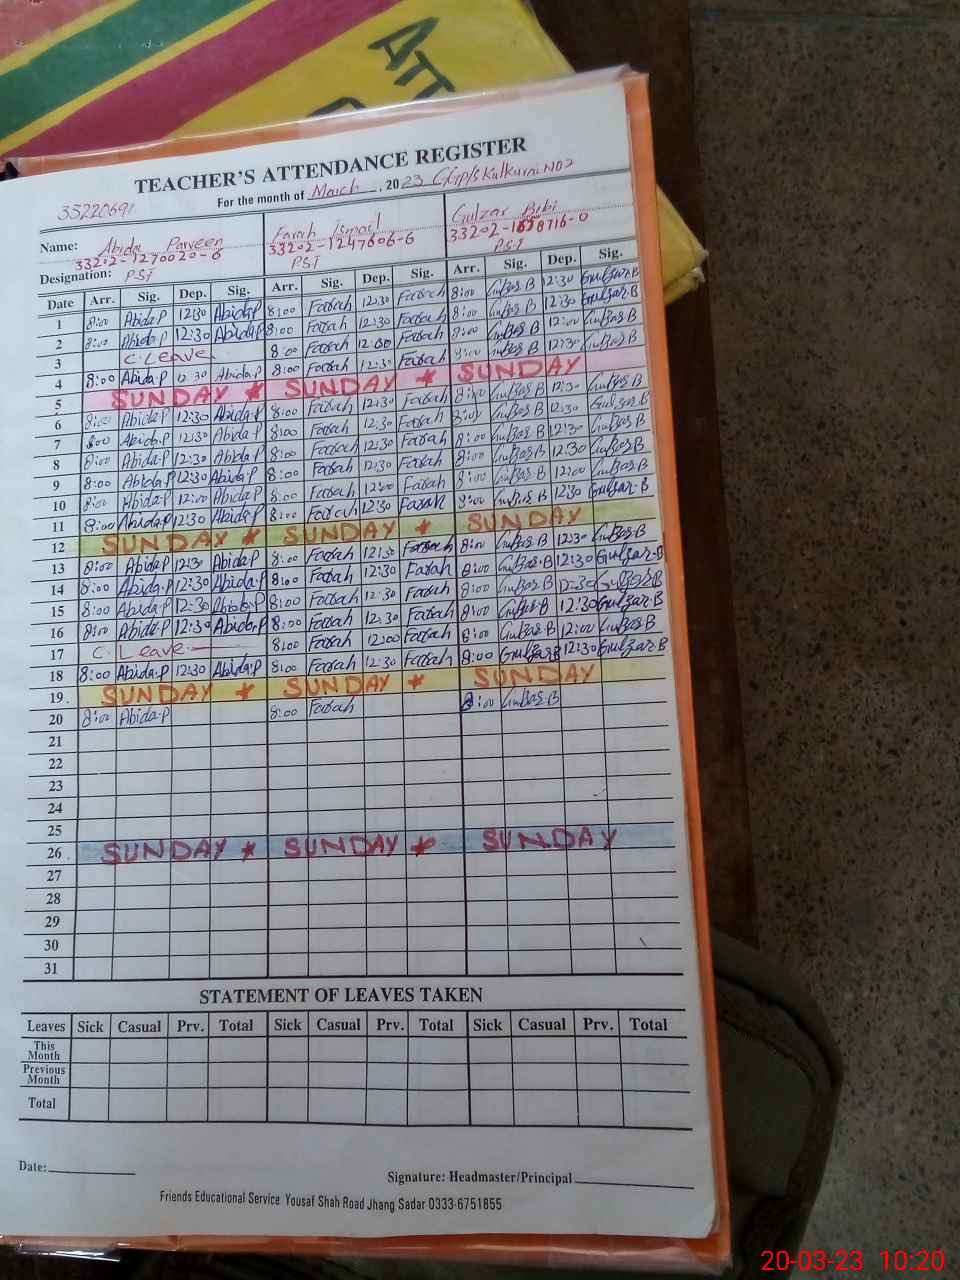 ATT
TEACHER'S ATTENDANCE REGISTER
For the month of March, 2023 GGP/S Kulkurai NO2
33220691
Name: Abida Parveen Farah Ismail Gulzar Bibi
33202-1270020-6 33202-1247606-6 33202-1658716-0
Designation: PST PST PST
Date Arr. Sig. Dep. Sig. Arr. Sig. Dep. Sig. Arr. Sig. Dep. Sig.
1 8:00 Abida.P 12:30 Abida.P 8:00 Farah 12:30 Farah 8:00 Gulzar.B 12:30 Gulzar.B
2 8:00 Abida.P 12:30 Abida.P 8:00 Farah 12:30 Farah 8:00 Gulzar.B 12:30 Gulzar.B
3 C.Leave 8:00 Farah 12:00 Farah 8:00 Gulzar.B 12:00 Gulzar.B
4 8:00 Abida.P 12:30 Abida.P 8:00 Farah 12:30 Farah 8:00 Gulzar.B 12:30 Gulzar.B
5 SUNDAY * SUNDAY * SUNDAY
6 8:00 Abida.P 12:30 Abida.P 8:00 Farah 12:30 Farah 8:00 Gulzar.B 12:30 Gulzar.B
7 8:00 Abida.P 12:30 Abida.P 8:00 Farah 12:30 Farah 8:00 Gulzar.B 12:30 Gulzar.B
8 8:00 Abida.P 12:30 Abida.P 8:00 Farah 12:30 Farah 8:00 Gulzar.B 12:30 Gulzar.B
9 8:00 Abida.P 12:30 Abida.P 8:00 Farah 12:30 Farah 8:00 Gulzar.B 12:30 Gulzar.B
10 8:00 Abida.P 12:00 Abida.P 8:00 Farah 12:00 Farah 8:00 Gulzar.B 12:00 Gulzar.B
11 8:00 Abida.P 12:30 Abida.P 8:00 Farah 12:30 Farah 8:00 Gulzar.B 12:30 Gulzar.B
12 SUNDAY * SUNDAY * SUNDAY
13 8:00 Abida.P 12:30 Abida.P 8:00 Farah 12:30 Farah 8:00 Gulzar.B 12:30 Gulzar.B
14 8:00 Abida.P 12:30 Abida.P 8:00 Farah 12:30 Farah 8:00 Gulzar.B 12:30 Gulzar.B
15 8:00 Abida.P 12:30 Abida.P 8:00 Farah 12:30 Farah 8:00 Gulzar.B 12:30 Gulzar.B
16 8:00 Abida.P 12:30 Abida.P 8:00 Farah 12:30 Farah 8:00 Gulzar.B 12:30 Gulzar.B
17 C.Leave 8:00 Farah 12:00 Farah 8:00 Gulzar.B 12:00 Gulzar.B
18 8:00 Abida.P 12:30 Abida.P 8:00 Farah 12:30 Farah 8:00 Gulzar.B 12:30 Gulzar.B
19 SUNDAY * SUNDAY * SUNDAY
20 8:00 Abida.P 8:00 Farah 8:00 Gulzar.B
21
22
23
24
25
26 SUNDAY * SUNDAY * SUNDAY
27
28
29
30
31
STATEMENT OF LEAVES TAKEN
Leaves Sick Casual Prv. Total Sick Casual Prv. Total Sick Casual Prv. Total
This Month
Previous Month
Total
Date:
Signature: Headmaster/Principal
Friends Educational Service Yousaf Shah Road Jhang Sadar 0333-6751855
20-03-23 10:20